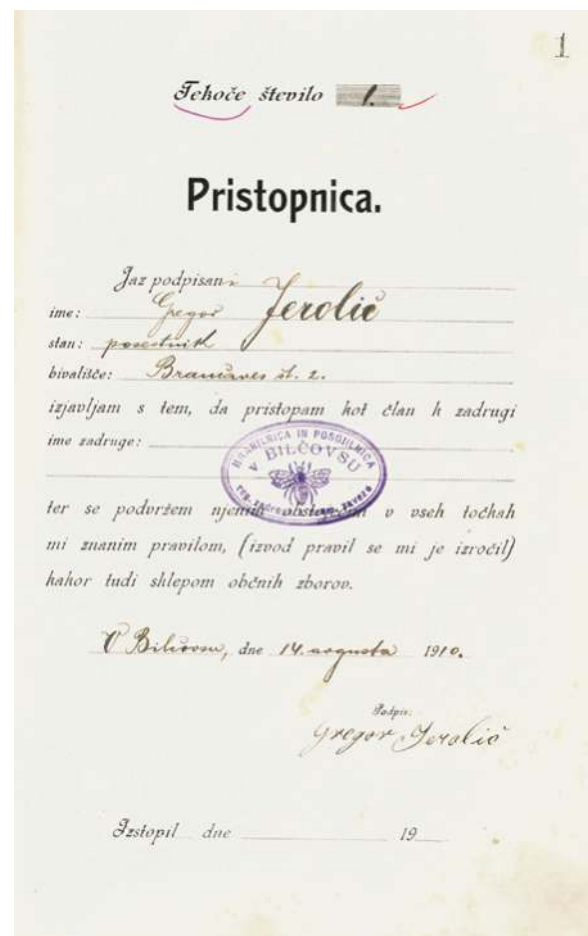 1
Tekoče število 1.
Pristopnica.
Jaz podpisani
ime: Gregor Jerolič
stan: posestnik
bivališče: Brančaves št. 2.
izjavljam s tem, da pristopam kot član k zadrugi
ime zadruge:
HRANILNICA IN POSOJILNICA
V BILČOVSU
reg. zadruga z neom. zavezo
ter se podvržem njenim obstoječim v vseh točkah
mi znanim pravilom, (izvod pravil se mi je izročil)
kakor tudi sklepom občnih zborov.
V Bilčovsu, dne 14. avgusta 1910.
Podpis:
Gregor Jerolič
Izstopil dne 19